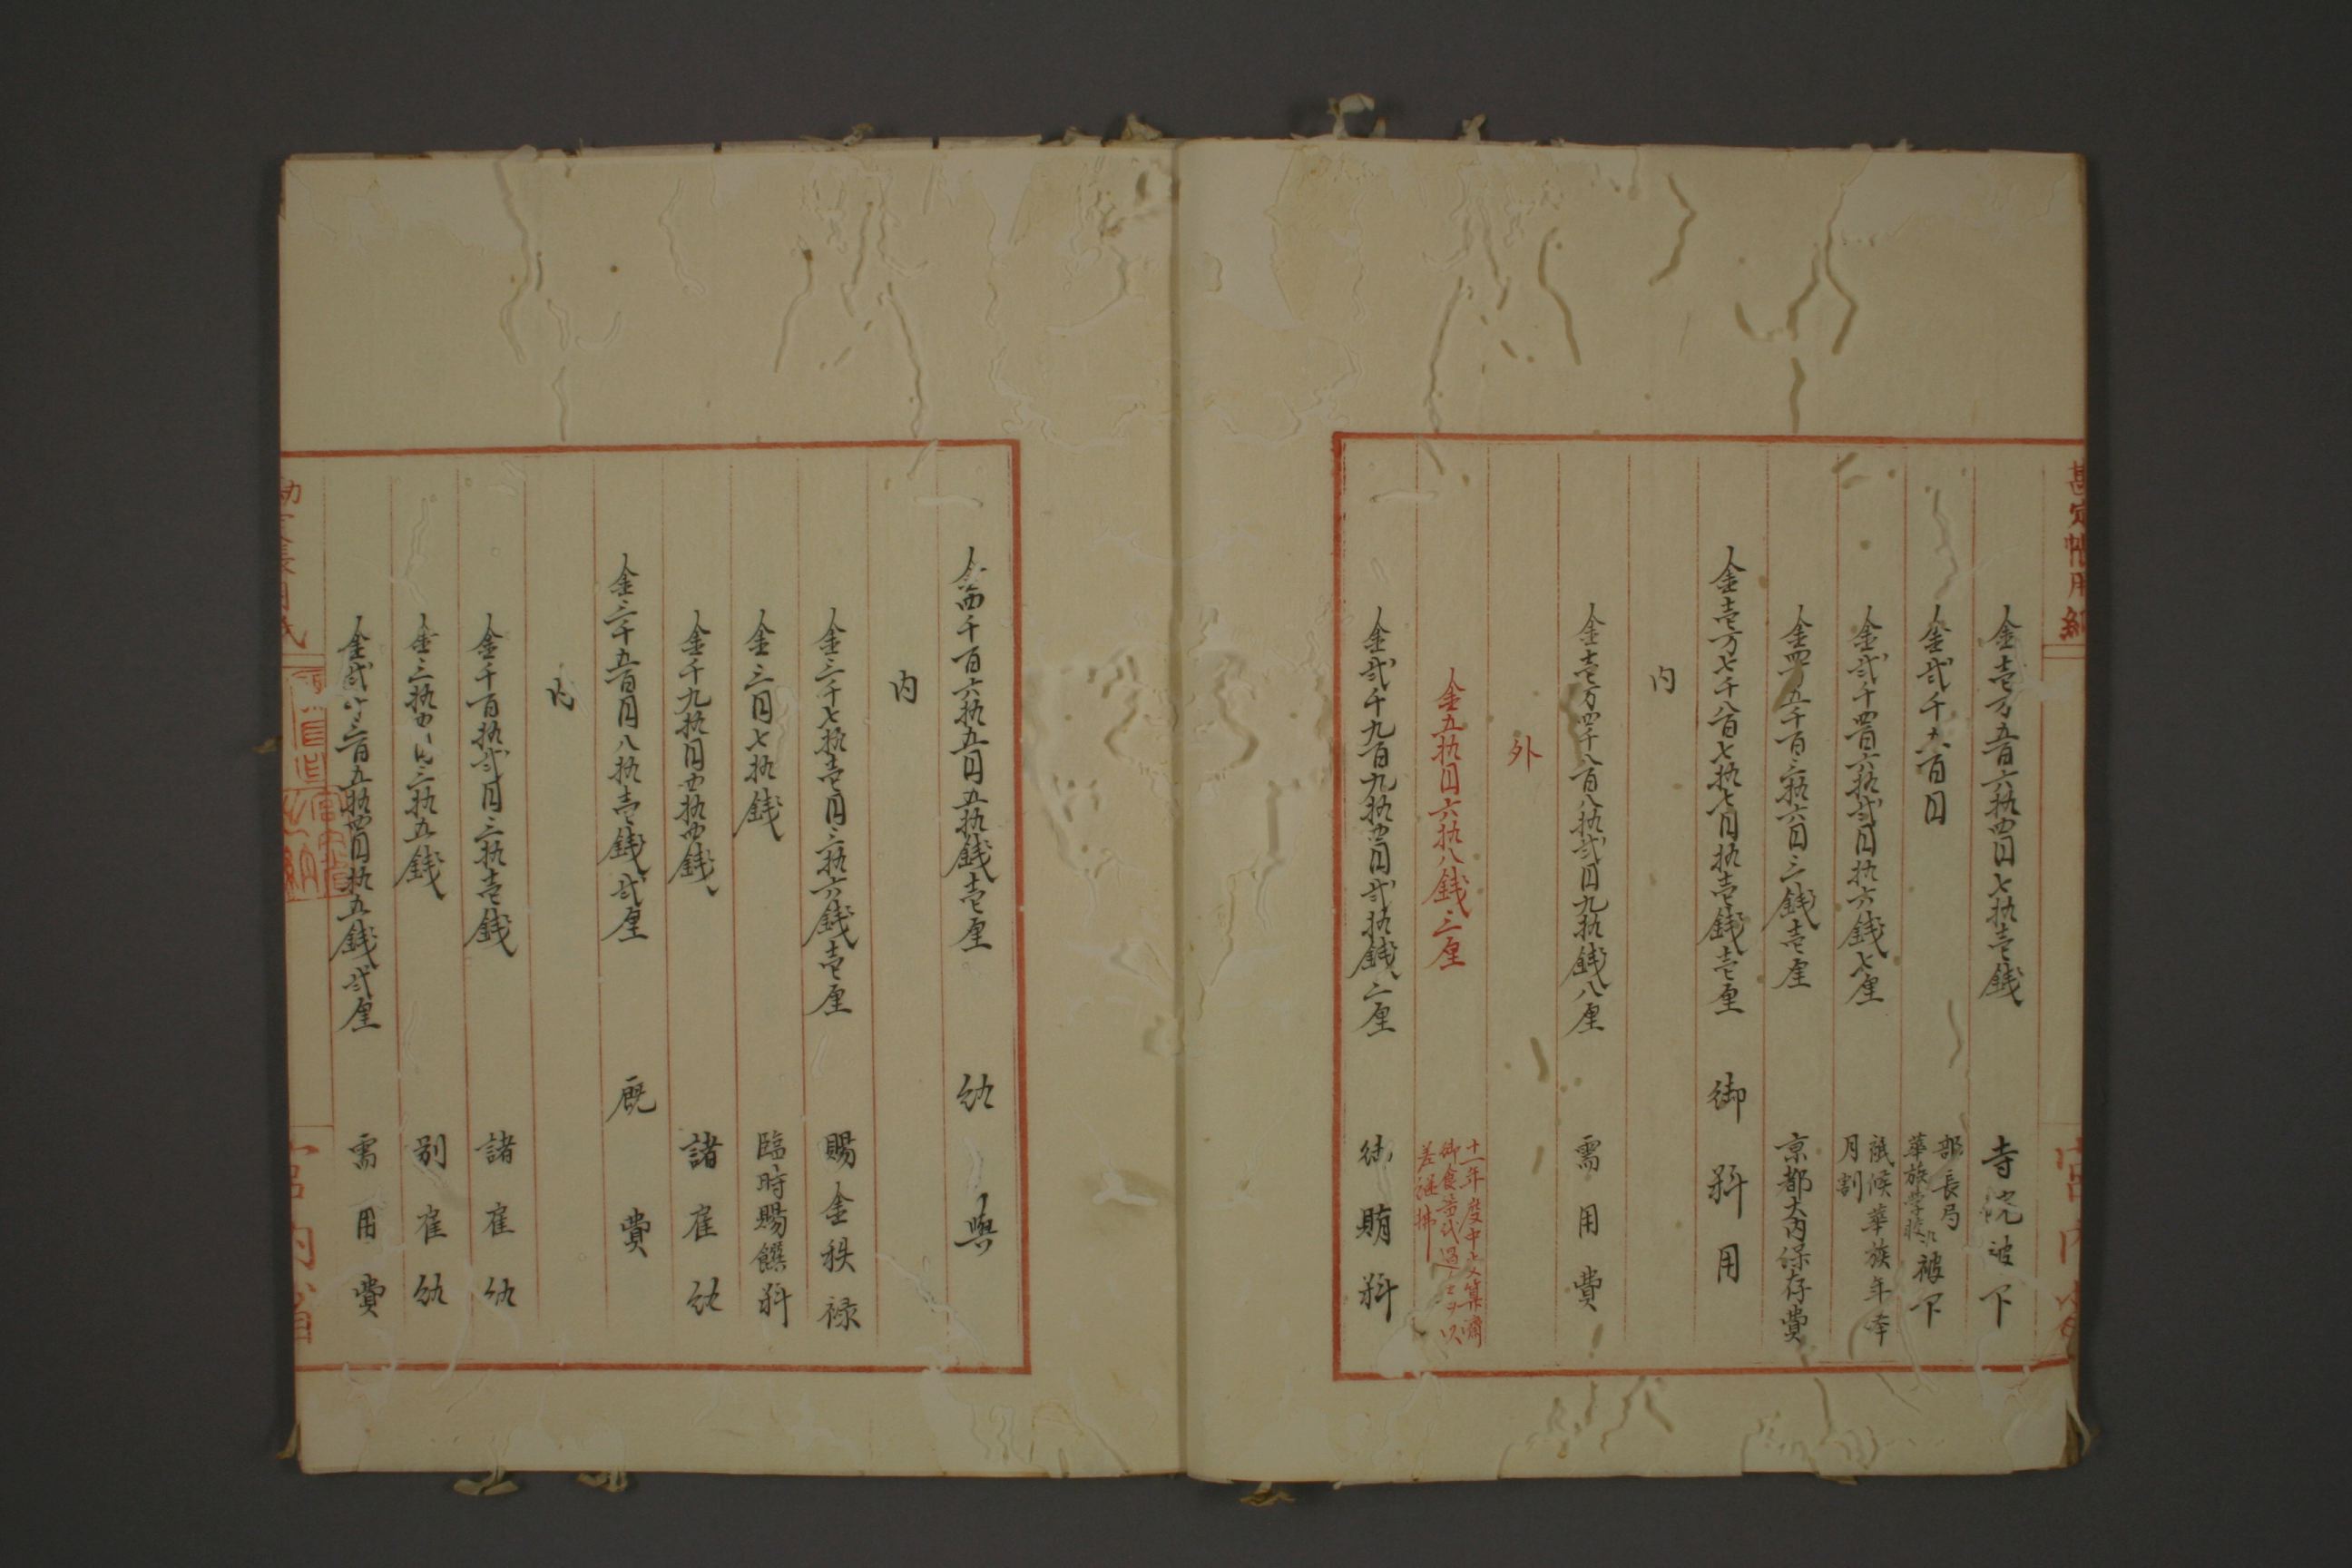 勘定帳用紙
金壱万五百六拾四円七拾壱銭 寺院被下
金弐千六百円 部長局華族学校江被下
金弐千四百六拾弐円拾六銭七厘 祗候華族年奉月割
五千百三拾六円三銭壱厘 京都大内保存費
金壱万七千八百七拾七円拾壱銭壱厘 御料用
内
金壱万四千八百八拾弐円九拾銭八厘 需用費
外
金五拾円六拾八銭三厘 十一年度中支算済御食番代過上ヲ以差継拂
金弐千九百九拾四円弐拾銭三厘 御賄料
金四千百六拾五円五拾銭壱厘 給与
内
金三千七拾壱円三拾六銭壱厘 賜金秩禄
金三円七拾銭 臨時賜饌料
金千九拾円四拾四銭 諸雇給
金三千五百円八拾壱銭弐厘 厩費
内
金千百拾弐円三拾壱銭 諸雇給
金三拾四円三拾五銭 別雇給
金弐千三百五拾四円拾五銭弐厘 需用費
宮内省